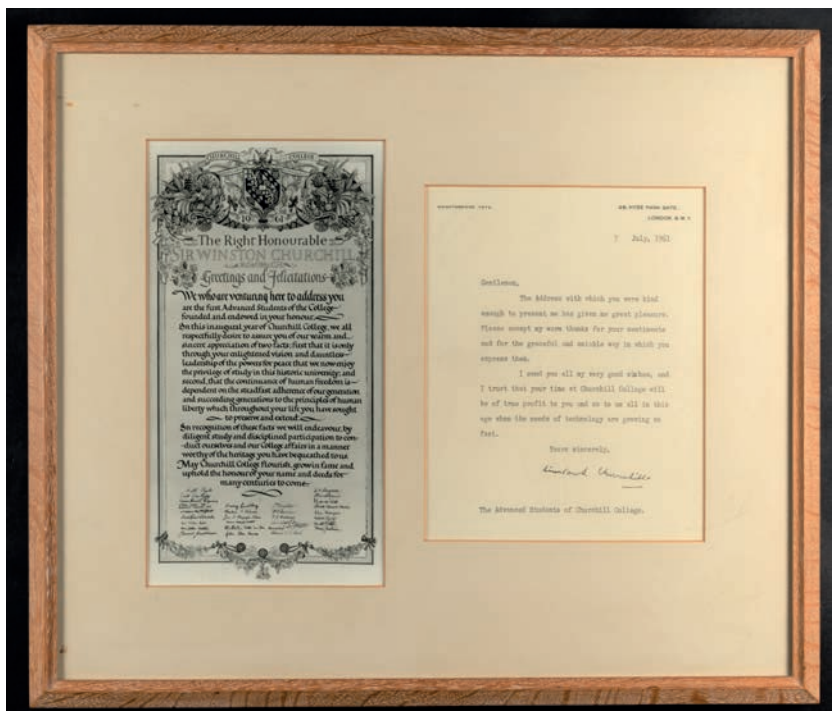 CHURCHILL COLLEGE
1961
The Right Honourable
SIR WINSTON CHURCHILL
Greetings and Felicitations
We who are venturing here to address you
are the first Advanced Students of the College
founded and endowed in your honour.
In this inaugural year of Churchill College, we all
respectfully desire to assure you of our warm and
sincere appreciation of two facts; first that it is only
through your enlightened vision and dauntless
leadership of the powers for peace that we now enjoy
the privilege of study in this historic university; and
second, that the continuance of human freedom is
dependent on the steadfast adherence of our generation
and succeeding generations to the principles of human
liberty which throughout your life you have sought
to preserve and extend.
In recognition of these facts we will endeavour, by
diligent study and disciplined participation to con-
duct ourselves and our College affairs in a manner
worthy of the heritage you have bequeathed to us.
May Churchill College flourish, grow in fame and
uphold the honour of your name and deeds for
many centuries to come.
28, HYDE PARK GATE,
LONDON, S.W.7.
7 July, 1961
Gentlemen,
The Address with which you were kind
enough to present me has given me great pleasure.
Please accept my warm thanks for your sentiments
and for the graceful and amiable way in which you
express them.
I send you all my very good wishes, and
I trust that your time at Churchill College will
be of true profit to you and so to us all in this
age when the needs of technology are growing so
fast.
Yours sincerely,
Winston S. Churchill
The Advanced Students of Churchill College.